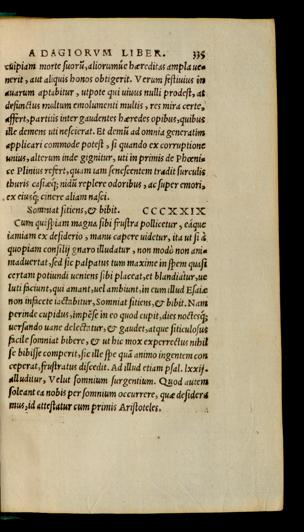 ADAGIORVM LIBER. 335
cuipiam morte suorũ, aliorumúe hæreditas ampla ue-
nerit, aut aliquis honos obtigerit. Verum festiuius in
auarum aptabitur, utpote qui uiuus nulli prodest, at
defunctus multum emolumenti multis, res mira certe,
affert, partitis inter gaudentes hæredes opibus, quibus
ille demens uti nescierat. Et demũ ad omnia generatim
applicari commode potest, si quando ex corruptione
unius, alterum inde gignitur, uti in primis de Phœni-
ce Plinius refert, quam iam senescentem tradit surculis
thuris casiæq; nidũ replere odoribus, ac super emori,
ex eiusq; cinere aliam nasci.
Somniat sitiens, & bibit. CCCXXIX
Cum quispiam magna sibi frustra pollicetur, eáque
iamiam ex desiderio, manu capere uidetur, ita ut si à
quopiam consilij gnaro illudatur, non modò non ani-
maduertat, sed sic palpatus tum maxime in spem quasi
certam potiundi uentens sibi placeat, et blandiatur, ue
luti faciunt, qui amant, uel ambiunt, in eum illud Esaiæ
non inficete iactabitur, Somniat sitiens, & bibit. Nam
perinde cupidus, impẽse in eo quod cupit, dies noctesq;
uersando uane delectatur, & gaudet, atque siticulosus
facile somniat bibere, & ut hic mox experrectus nihil
se bibisse comperit, sic ille spe quã animo ingentem con
ceperat, frustratus discedit. Ad illud etiam psal. lxxij.
alluditur, Velut somnium surgentium. Quod autem
soleant ea nobis per somnium occurrere, quæ desidera
mus, id attestatur cum primis Aristoteles.